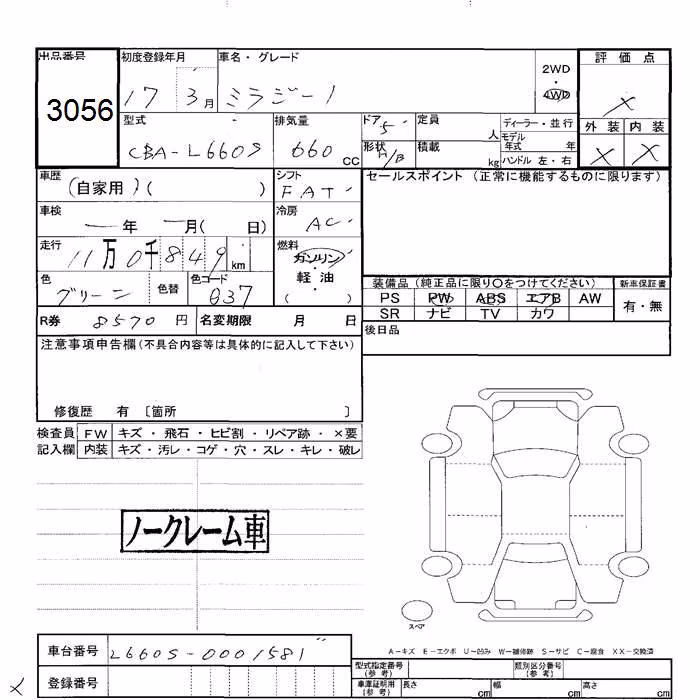 出品番号
3056
初度登録年月
17 3月
車名・グレード
ミラジーノ
2WD
4WD
評価点
×
外装 内装
× ×
型式
CBA-L660S
排気量
660 CC
ドア 5
形状 H/B
定員 人
積載 kg
ディーラー・並行
モデル年式 年
ハンドル 左・右
車歴
(自家用)( )
シフト
FAT
セールスポイント (正常に機能するものに限ります)
車検
― 年 ― 月( 日)
冷房
AC
走行
11万0千849 km
燃料
ガソリン
軽油
( )
色
グリーン
色替
色コード
G37
装備品 (純正品に限り〇をつけてください)
新車保証書
PS PW ABS エアB AW
SR ナビ TV カワ
有・無
R券 8570 円
名変期限 月 日
後日品
注意事項申告欄(不具合内容等は具体的に記入して下さい)
修復歴 有 〔箇所 〕
検査員 FW キズ・飛石・ヒビ割・リペア跡・×要
記入欄 内装 キズ・汚レ・コゲ・穴・スレ・キレ・破レ
ノークレーム車
スペア
A-キズ E-エクボ U-凹み W-補修跡 S-サビ C-腐食 XX-交換済
車台番号 L660S-0001581
登録番号
×
型式指定番号 (参考)
類別区分番号 (参考)
車庫証明用 (参考)
長さ cm 幅 cm 高さ cm